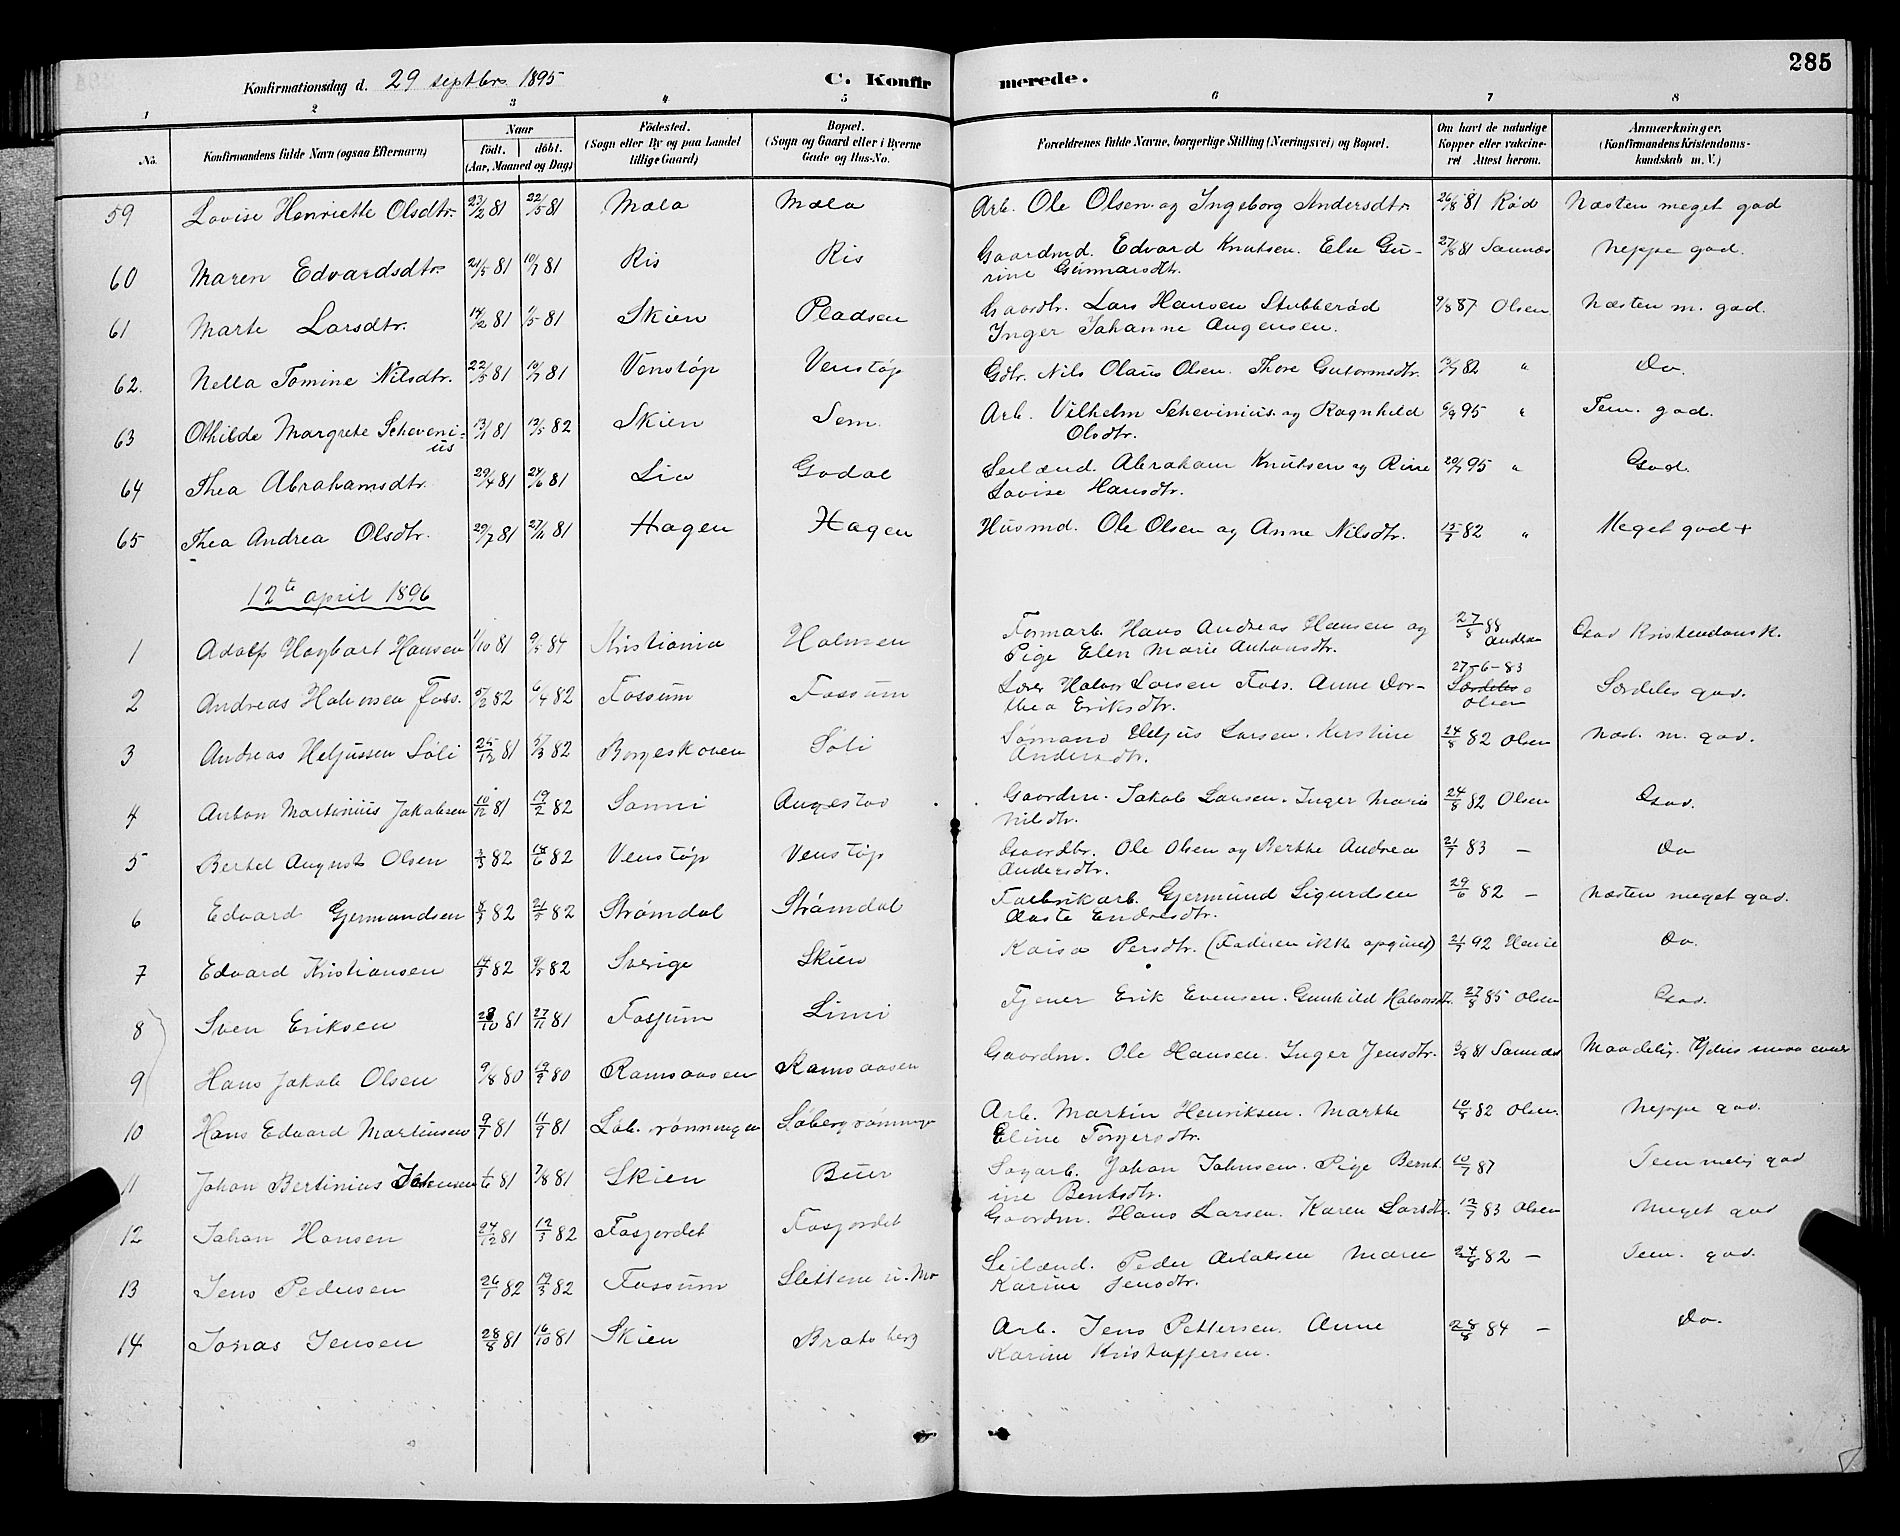 285
Konfirmationsdag d. 29 septbr. 1895 C. Konfirmerede.
1 2 3 4 5 6 7 8
No. Konfirmandens fulde Navn (ogsaa Efternavn) Naar født. døbt. (Aar, Maaned og Dag) Fødested. (Sogn eller By og paa Landet tillige Gaard) Bopæl. (Sogn og Gaard eller i Byerne Gade og Hus-No. Forældrenes fulde Navne, borgerlige Stilling (Næringsvei) og Bopæl. Om havt de naturlige Kopper eller vakcineret Attest herom. Anmærkninger. (Konfirmandens Kristendomskundskab m. V.)
59 Lovise Henriette Olsdtr. 23/2 81 22/5 81 Mæla Mæla Arb. Ole Olsen og Ingeborg Andersdtr. 26/8 81 Rød Næsten meget god
60 Maren Edvardsdtr. 21/5 81 10/7 81 Ris Ris Gaardmd. Edvard Knutsen. Else Gu-
rine Gunnarsdtr. 27/8 81 Sannæs Neppe god.
61 Marte Larsdtr. 14/2 81 1/5 81 Skien Pladsen Gaardbr. Lars Hansen Stubberød
Inger Johanne Augensen. 9/8 87 Olsen Næsten m. god.
62. Nella Tomine Nilsdtr. 22/5 81 10/7 81 Venstøp Venstøp Gdbr. Nils Olaus Olsen. Thore Gutormsdtr. 13/7 82 " Do.
63 Othilde Margrete Scheveni-
us 13/1 81 12/5 82 Skien Sem. Arb. Vilhelm Schevinius og Ragnhild
Olsdtr. 6/9 95 " Tem. god.
64 Thea Abrahamsdtr. 29/4 81 24/6 81 Lia Godal Leilænd. Abraham Knutsen og Rine
Lovise Hansdtr. 20/9 95 " God.
65 Thea Andrea Olsdtr. 29/7 81 27/11 81 Hagen Hagen Husmd. Ole Olsen og Anne Nilsdtr. 12/7 82 " Meget god +
12te april 1896
1 Adolf Hagbart Hansen 1/10 81 9/5 84 Kristiania Holmen Formarb. Hans Andreas Hansen og
Pige Elen Marie Antonsdtr. 27/8 88 God Kristendomsk.
2 Andreas Halvorsen Foss. 5/2 82 6/4 82 Fossum Fossum Lærer Halvor Larsen Foss. Anne Dor-
thea Eriksdtr. 27-6-83
Særdeles
Olsen Særdeles god.
3 Andreas Heljussen Løli 25/12 81 5/3 82 Borgeskoven Løli Sømand Heljus Larsen. Kirstine
Andersdtr. 24/8 82 Olsen Næst. m. god.
4 Anton Martinius Jakobsen 10/12 81 19/2 82 Sanni Augestad Gaardm. Jakob Larsen. Inger Marie
Nilsdtr. 24/8 82 Olsen God.
5 Bertel August Olsen 3/3 82 18/6 82 Venstøp Venstøp Gaardbr. Ole Olsen og Berthe Andrea
Andersdtr. 21/7 83 — Do
6 Edvard Gjermundsen 8/3 82 21/5 82 Strømdal Strømdal Fabrikarb. Gjermund Sigurdsen
Aaste Endresdtr. 29/6 82 — Næsten meget god.
7 Edvard Kristiansen 14/3 82 9/5 82 Sverige Skien Kaisa Persdtr. (Faderen ikke opgivet) 21/7 92 Do.
8 Sven Eriksen 28/10 81 27/11 81 Fossum Limi Tjener Erik Evensen. Gunhild Halvorsdtr. 27/8 85 Olsen God.
9 Hans Jakob Olsen 9/8 80 19/9 80 Ramsaasen Ramsaasen Gaardm. Ole Hansen. Inger Jensdtr. 3/9 81 Sannæs Maadelig. Yders smaa evner
10 Hans Edvard Martinsen 9/7 81 11/9 81 Løb. rønningen Løbergrønninge Arb. Martin Henriksen. Marthe
Eline Torgersdtr. 10/8 82 Olsen Neppe god.
11 Johan Bertinius Johnsen 1/6 81 7/8 81 Skien Buer Sagarb. Johan Johnsen. Pige Bernt-
ine Bentsdtr. 10/7 87 Temmelig god
12 Johan Hansen 24/12 81 12/3 82 Fosjordet Fosjordet Gaardm. Hans Larsen. Karen Larsdtr. 12/7 83 Olsen Meget god
13 Jens Pedersen 26/1 82 19/3 82 Fossum Slettene Leilænd. Peder Aslaksen Maren
Karine Jensdtr. 24/8 82 — Tem. god.
14 Jonas Jensen 28/8 81 16/10 81 Skien Bratsberg Arb. Jens Pettersen. Anne
Karine Kristoffersen. 28/8 84 — Do.